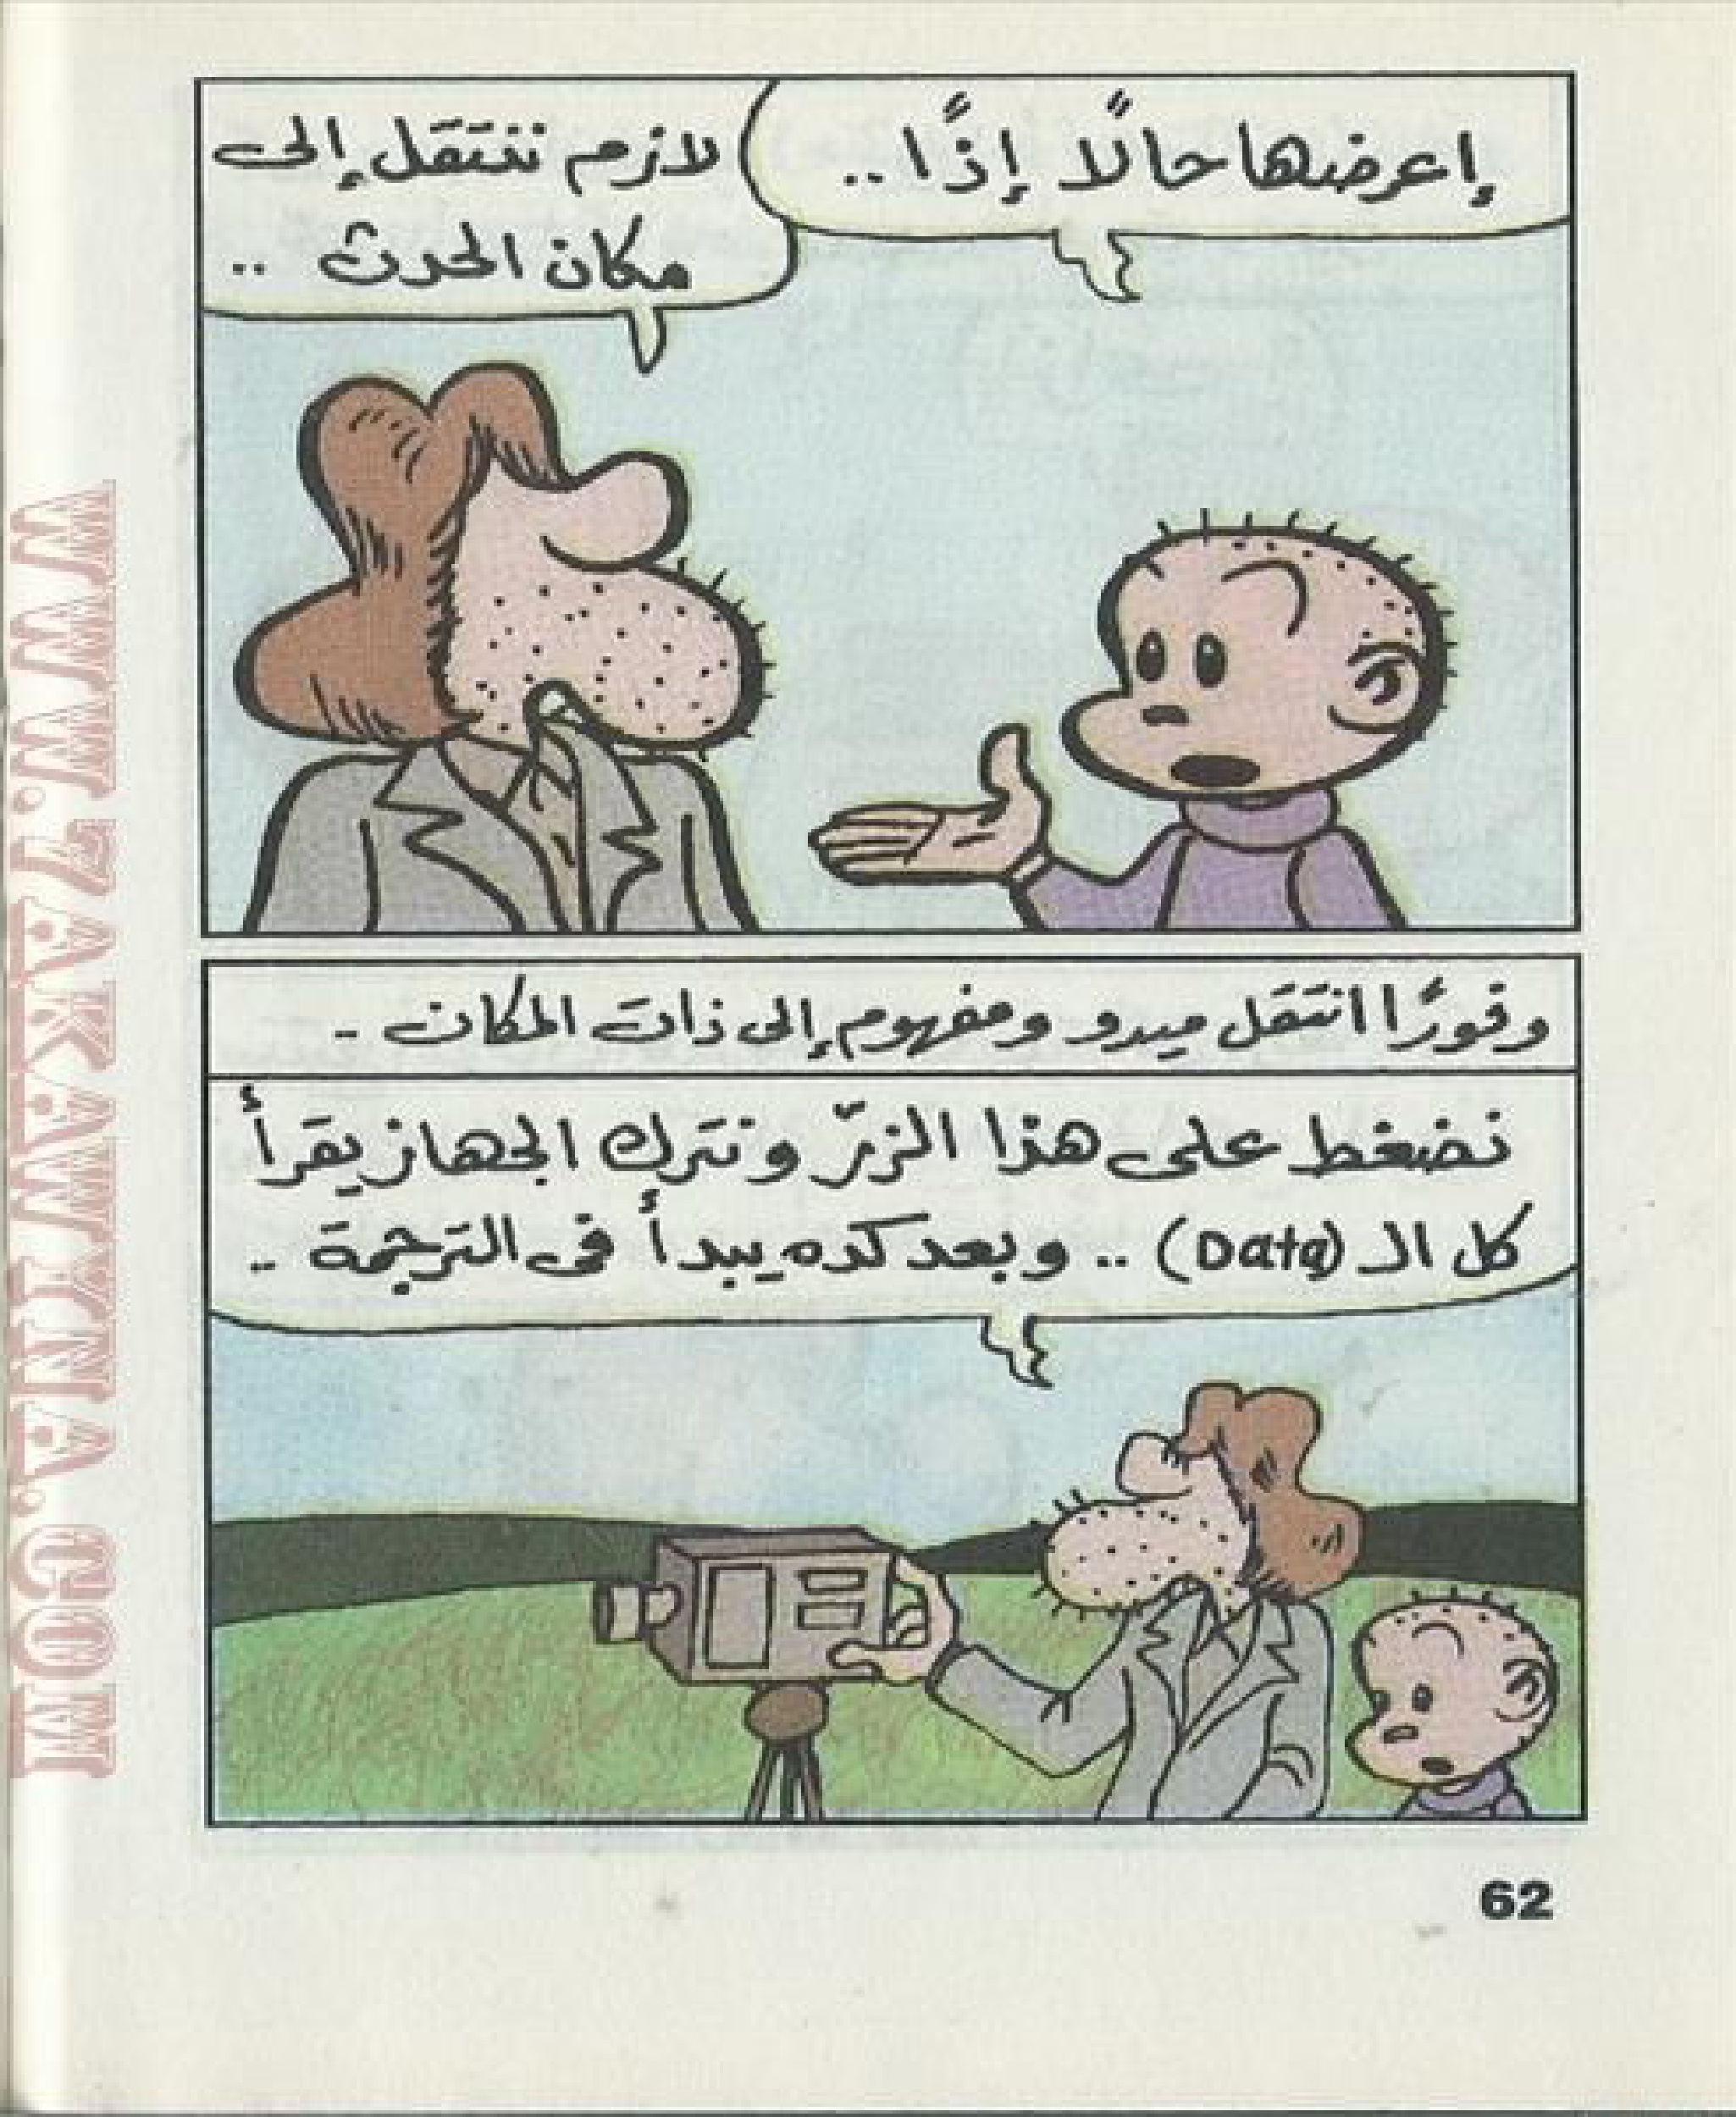 إعرضها حالًا إذًا..
لازم ننتقل إلى
مكان الحدث ..
وفورًا انتقل ميدو ومفهوم إلى ذات المكان -
نضغط على هذا الزرّ ونترك الجهاز يقرأ
كل الـ (Data) .. وبعد كده يبدأ فى الترجمة ..
62
WWW.7AKAWINA.COM